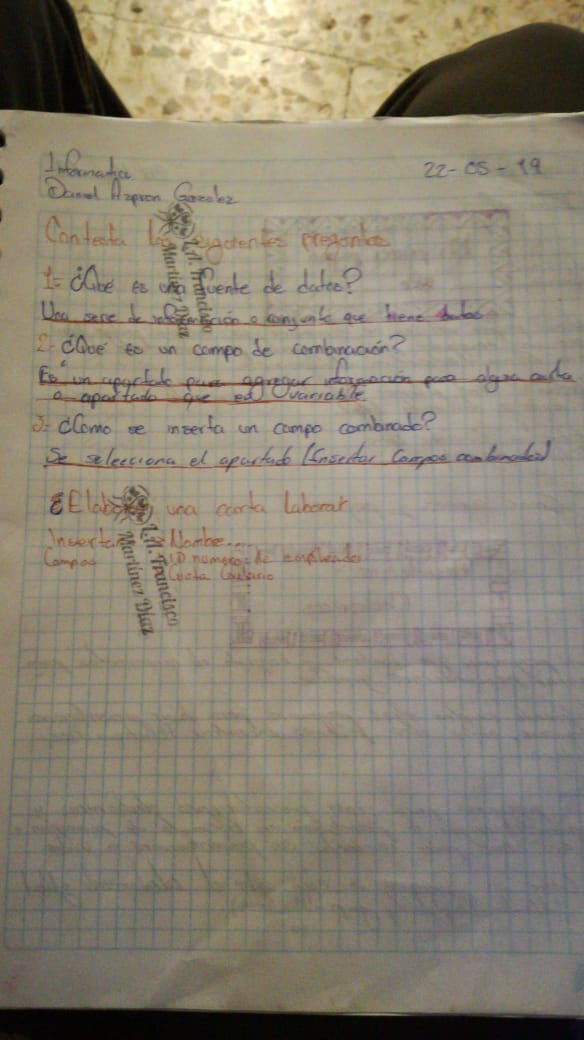 Informatica
22-05-19
Daniel Gonzalez
Contesta las siguientes preguntas
1= ¿Qué es una fuente de datos?
Una serie de información o conjunto que tiene datos
2= ¿Qué es un campo de combinación?
Es un apartado para agregar información para alguna carta
o apartado que es variable
3= ¿Como se inserta un campo combinado?
Se selecciona el apartado (Insertar Campos combinados)
una carta laboral
Insertar Nombre...
Campos ID numero de empleado
L.A. Francisco
Martinez Diaz
L.A. Francisco
Martinez Diaz